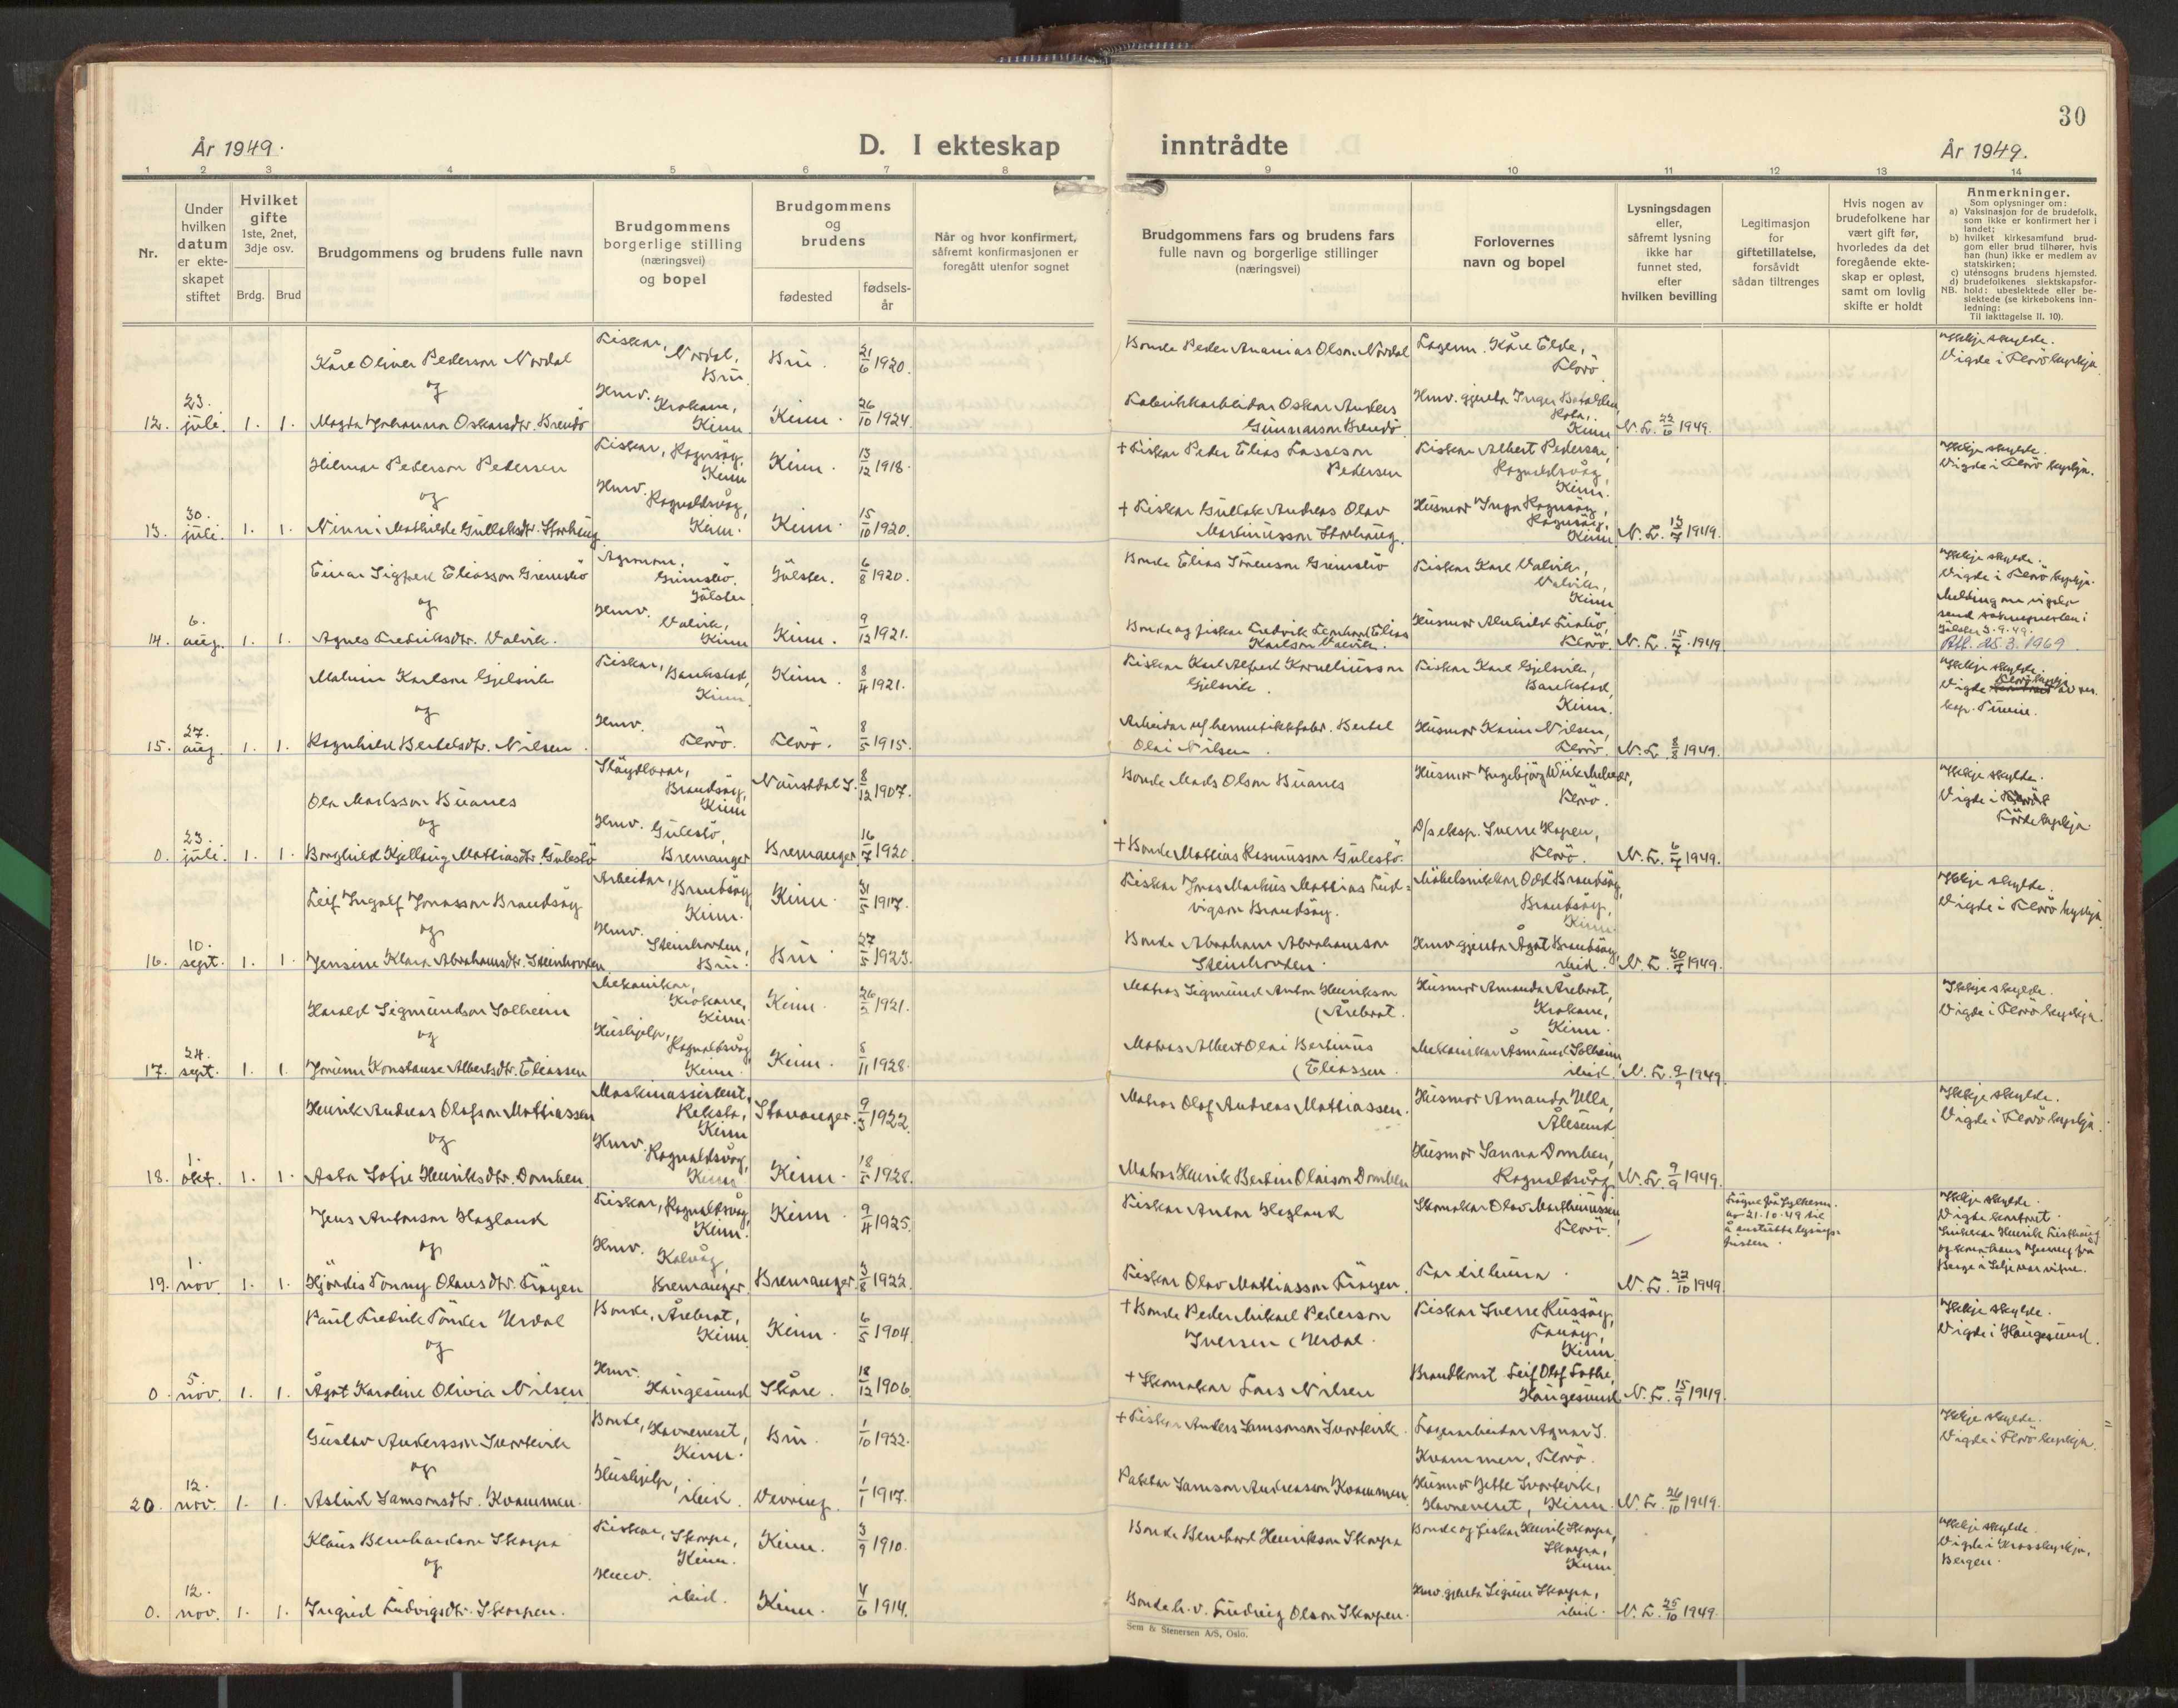 30
År 1949.
D. I ekteskap inntrådte
År 1949.
1 2 3 4 5 6 7 8 9 10 11 12 13 14
Nr.
Under
hvilken
datum
er ekte-
skapet
stiftet
Hvilket
gifte
1ste, 2net,
3dje osv.
Brdg. Brud
Brudgommens og brudens fulle navn
Brudgommens
borgerlige stilling
(næringsvei)
og bopel
Brudgommens
og
brudens
fødested
fødsels-
år
Når og hvor konfirmert,
såfremt konfirmasjonen er
foregått utenfor sognet
Brudgommens fars og brudens fars
fulle navn og borgerlige stillinger
(næringsvei)
Forlovernes
navn og bopel
Lysningsdagen
eller,
såfremt lysning
ikke har
funnet sted,
efter
hvilken bevilling
Legitimasjon
for
giftetillatelse,
forsåvidt
sådan tiltrenges
Hvis nogen av
brudefolkene har
vært gift før,
hvorledes da det
foregående ekte-
skap er opløst,
samt om lovlig
skifte er holdt
Anmerkninger.
Som oplysninger om:
a) Vaksinasjon for de brudefolk,
som ikke er konfirmert her i
landet;
b) hvilket kirkesamfund brud-
gom eller brud tilhører, hvis
han (hun) ikke er medlem av
statskirken;
c) utensogns brudens hjemsted.
d) brudefolkenes slektskapsfor-
NB. hold: ubeslektede eller be-
slektede (se kirkebokens inn-
ledning:
Til iakttagelse II. 10).
Kåre Oliver Pederson Nordal
Fiskar, Nordal, Bru
Bru. 21/6 1920.
Bonde Peder Ananias Olson Nordal
Lagerm. Kåre Elde, Florö
Ikkje skylde.
Vigde i Florö kyrkja
og
12. 23. juli. 1. 1. Magda Johanna Oskarsdtr. Brendö
Hmv. Krokane, Kinn
Kinn. 26/10 1924.
Fabrikkarbeidar Oskar Anders
Gunnarson Brendö.
Hmv. gjenta Inger Botolfsen,
Kinn
N. L. 22/6 1949.
Hilmar Pederson Pedersen
Fiskar, Rognsåg, Kinn
Kinn. 13/12 1918.
+ Fiskar Peder Elias Lasseson
Pedersen
Fiskar Albert Pedersen,
Rognaldsvåg,
Kinn.
Ikkje skylde.
Vigde i Florö kyrkja.
og
13. 30. juli. 1. 1. Ninni Mathilde Gullaksdtr. Storhaug
Hmv. Rognaldsvåg, Kinn.
Kinn. 15/10 1920.
+ Fiskar Gullak Andreas Olav
Martinusson Storhaug.
Husmor Inga Rognsåg,
Rognsåg,
Kinn
N. L. 13/7 1949.
Einar Sigfred Eliasson Grimsbö
Agronom, Grimsbö. Jölster
Jölster. 6/8 1920.
Bonde Elias Sörenson Grimsbö
Fiskar Karl Valvik,
Valvik,
Kinn
Ikkje skylde.
Vigde i Florö kyrkja.
Melding om vigsla
send
Jölster 3.9.49.
25.3.1969
og
14. 6. aug. 1. 1. Agnes Fredriksdtr. Valvik.
Hmv. Valvik, Kinn
Kinn. 9/12 1921.
Bonde og fiskar Fredrik Lenhard Elias
Karlson Valvik.
Husmor Alvhild
Florö
N. L. 15/7 1949
Malvin Karlson Gjelsvik
Fiskar, Barekstad, Kinn.
Kinn. 8/4 1921.
Fiskar Karl Alfred Korneliusson
Gjelsvik.
Fiskar Karl Gjelsvik,
Barekstad,
Kinn.
Ikkje skylde.
Vigde Florö kyrkja av res.
kap.
og
15. 27. aug. 1. 1. Ragnhild Bertelsdtr. Nilsen.
Hmv. Florö.
Florö. 8/5 1915.
Arbeidar v/ hermetikkfabr. Bertel
Olai Nilsen.
Husmor Karin Nilsen,
Florö.
N. L. 8/8 1949.
Ola Madsson Buanes
Slöydlærar, Brandsöy, Kinn
Naustdal S. 8/12 1907.
Bonde Mads Olson Buanes
Husmor Ingebjörg
Florö.
Ikkje skylde.
Vigde i
Förde kyrkja.
og
0. 23. juli. 1. 1. Borghild Kjellaug Mattiasdtr. Gulestö
Hmv. Gulestö, Bremanger
Bremanger 16/7 1920
+ Bonde Mattias Rasmusson Gulestö.
D/s eksp. Sverre Hopen,
Florö.
N. L. 6/7 1949.
Leif Ingolf Jonasson Brandsöy
Arbeidar, Brandsöy Kinn.
Kinn. 31/5 1917.
Fiskar Jonas Markus Mattias Lud=
vigson Brandsöy.
Möbelsnikkar Odd Brandsöy,
Brandsöy,
Kinn.
Ikkje skylde.
Vigde i Florö kyrkja.
og
16. 10. sept. 1. 1. Jensine Klara Abrahamsdtr. Steinhovden
Hmv. Steinhovden, Bru.
Bru. 27/5 1923.
Bonde Abraham Abrahamson
Steinhovden.
Hmv gjenta Ågot Brandsöy,
ibid.
N. L. 30/7 1949.
Harald Sigmundson Solheim
Mekanikar, Krokane, Kinn.
Kinn. 26/2 1921.
Matros Sigmund Anton Henrikson
(Årebrot.
Husmor Amanda Årebrot,
Krokane,
Kinn.
Ikkje skylde.
Vigde i Florö kyrkja.
og
17. 24. sept. 1. 1. Jorunn Konstanse Albertsdtr. Eliassen
Hushjelp, Rognaldsvåg Kinn.
Kinn. 8/11 1928.
Matros Albert Olai Bertinus
(Eliassen.
Mekanikar Åsmund Solheim,
ibid.
N. L. 9/9 1949.
Henrik Andreas Olafson Mattiassen
Maskinassistent, Reksta, Kinn
Stavanger. 9/3 1922.
Matros Olaf Andreas Mattiassen.
Husmor Amanda Ulla,
Ålesund.
Ikkje skylde.
Vigde i Florö kyrkja.
og
18. 1. okt. 1. 1. Asta Sofie Henriksdtr. Domben.
Hmv. Rognaldsvåg, Kinn.
Kinn. 18/5 1928.
Matros Henrik Bertin Olaison Domben
Husmor Sanna Domben,
Rognaldsvåg
N. L. 9/9 1949.
Jens Antonson Hagland
Fiskar, Rognaldsvåg Kinn.
Kinn. 9/4 1925.
Fiskar Anton Hagland
Skomakar Olav Marthinussen
Florö.
av 21.10.49 til
å avstutte lysings-
fristen.
Ikkje skylde.
Vigde kontoret.
og
19. 1. nov. 1. 1. Hjördis Tonny Olausdtr. Fröyen
Hmv. Kalvåg, Bremanger
Bremanger. 3/8 1922.
Fiskar Olav Mattiasson Fröyen.
Far til brura.
N. L. 22/10 1949.
Paul Fredrik Tönder Urdal
Bonde, Årebrot, Kinn
Kinn. 6/5 1904.
+ Bonde Peder Mikael Pederson
Iversen (Urdal.
Fiskar Sverre Russöy,
Fanöy,
Kinn.
Ikkje skylde.
Vigde i Haugesund.
og
0. 5. nov. 1. 1. Ågot Karoline Olivia Nilsen
Hmv. Haugesund
Skåre. 18/12 1906
+ Skomakar Lars Nilsen
Brandkonst. Leif Olaf Lothe,
Haugesund
N. L. 15/9 1949.
Gustav Andersson Svortevik
Bonde, Havreneset, Kinn.
Bru. 1/10 1922.
+ Fiskar Anders Samsonson Svortevik.
Lagerarbeidar Agnar S.
Kvammen, Florö.
Ikkje skylde.
Vigde i Florö kyrkja.
og
20. 12. nov. 1. 1. Astrid Samsonsdtr. Kvammen.
Hushjelp, ibid.
Vevring. 1/1 1917.
Pakkar Samson Andreasson Kvammen
Husmor Jette Svortevik,
Havreneset, Kinn.
N. L. 26/10 1949.
Klaus Bernhardson Skorpa
Fiskar, Skorpa, Kinn.
Kinn. 3/9 1910.
Bonde Bernhard Henrikson Skorpa
Bonde og fiskar Henrik Skorpa,
Skorpa,
Kinn
Ikkje skylde.
Vigde i Krosskyrkja,
Bergen.
og
0. 12. nov. 1. 1. Ingrid Ludvigsdtr. Skorpen.
Hmv. ibid.
Kinn. 4/6 1914.
Bonde h. v. Ludvig Olson Skorpen.
Hmv gjenta Sigrun Skorpa,
ibid.
N. L. 25/10 1949.
Sem & Stenersen A/S, Oslo.